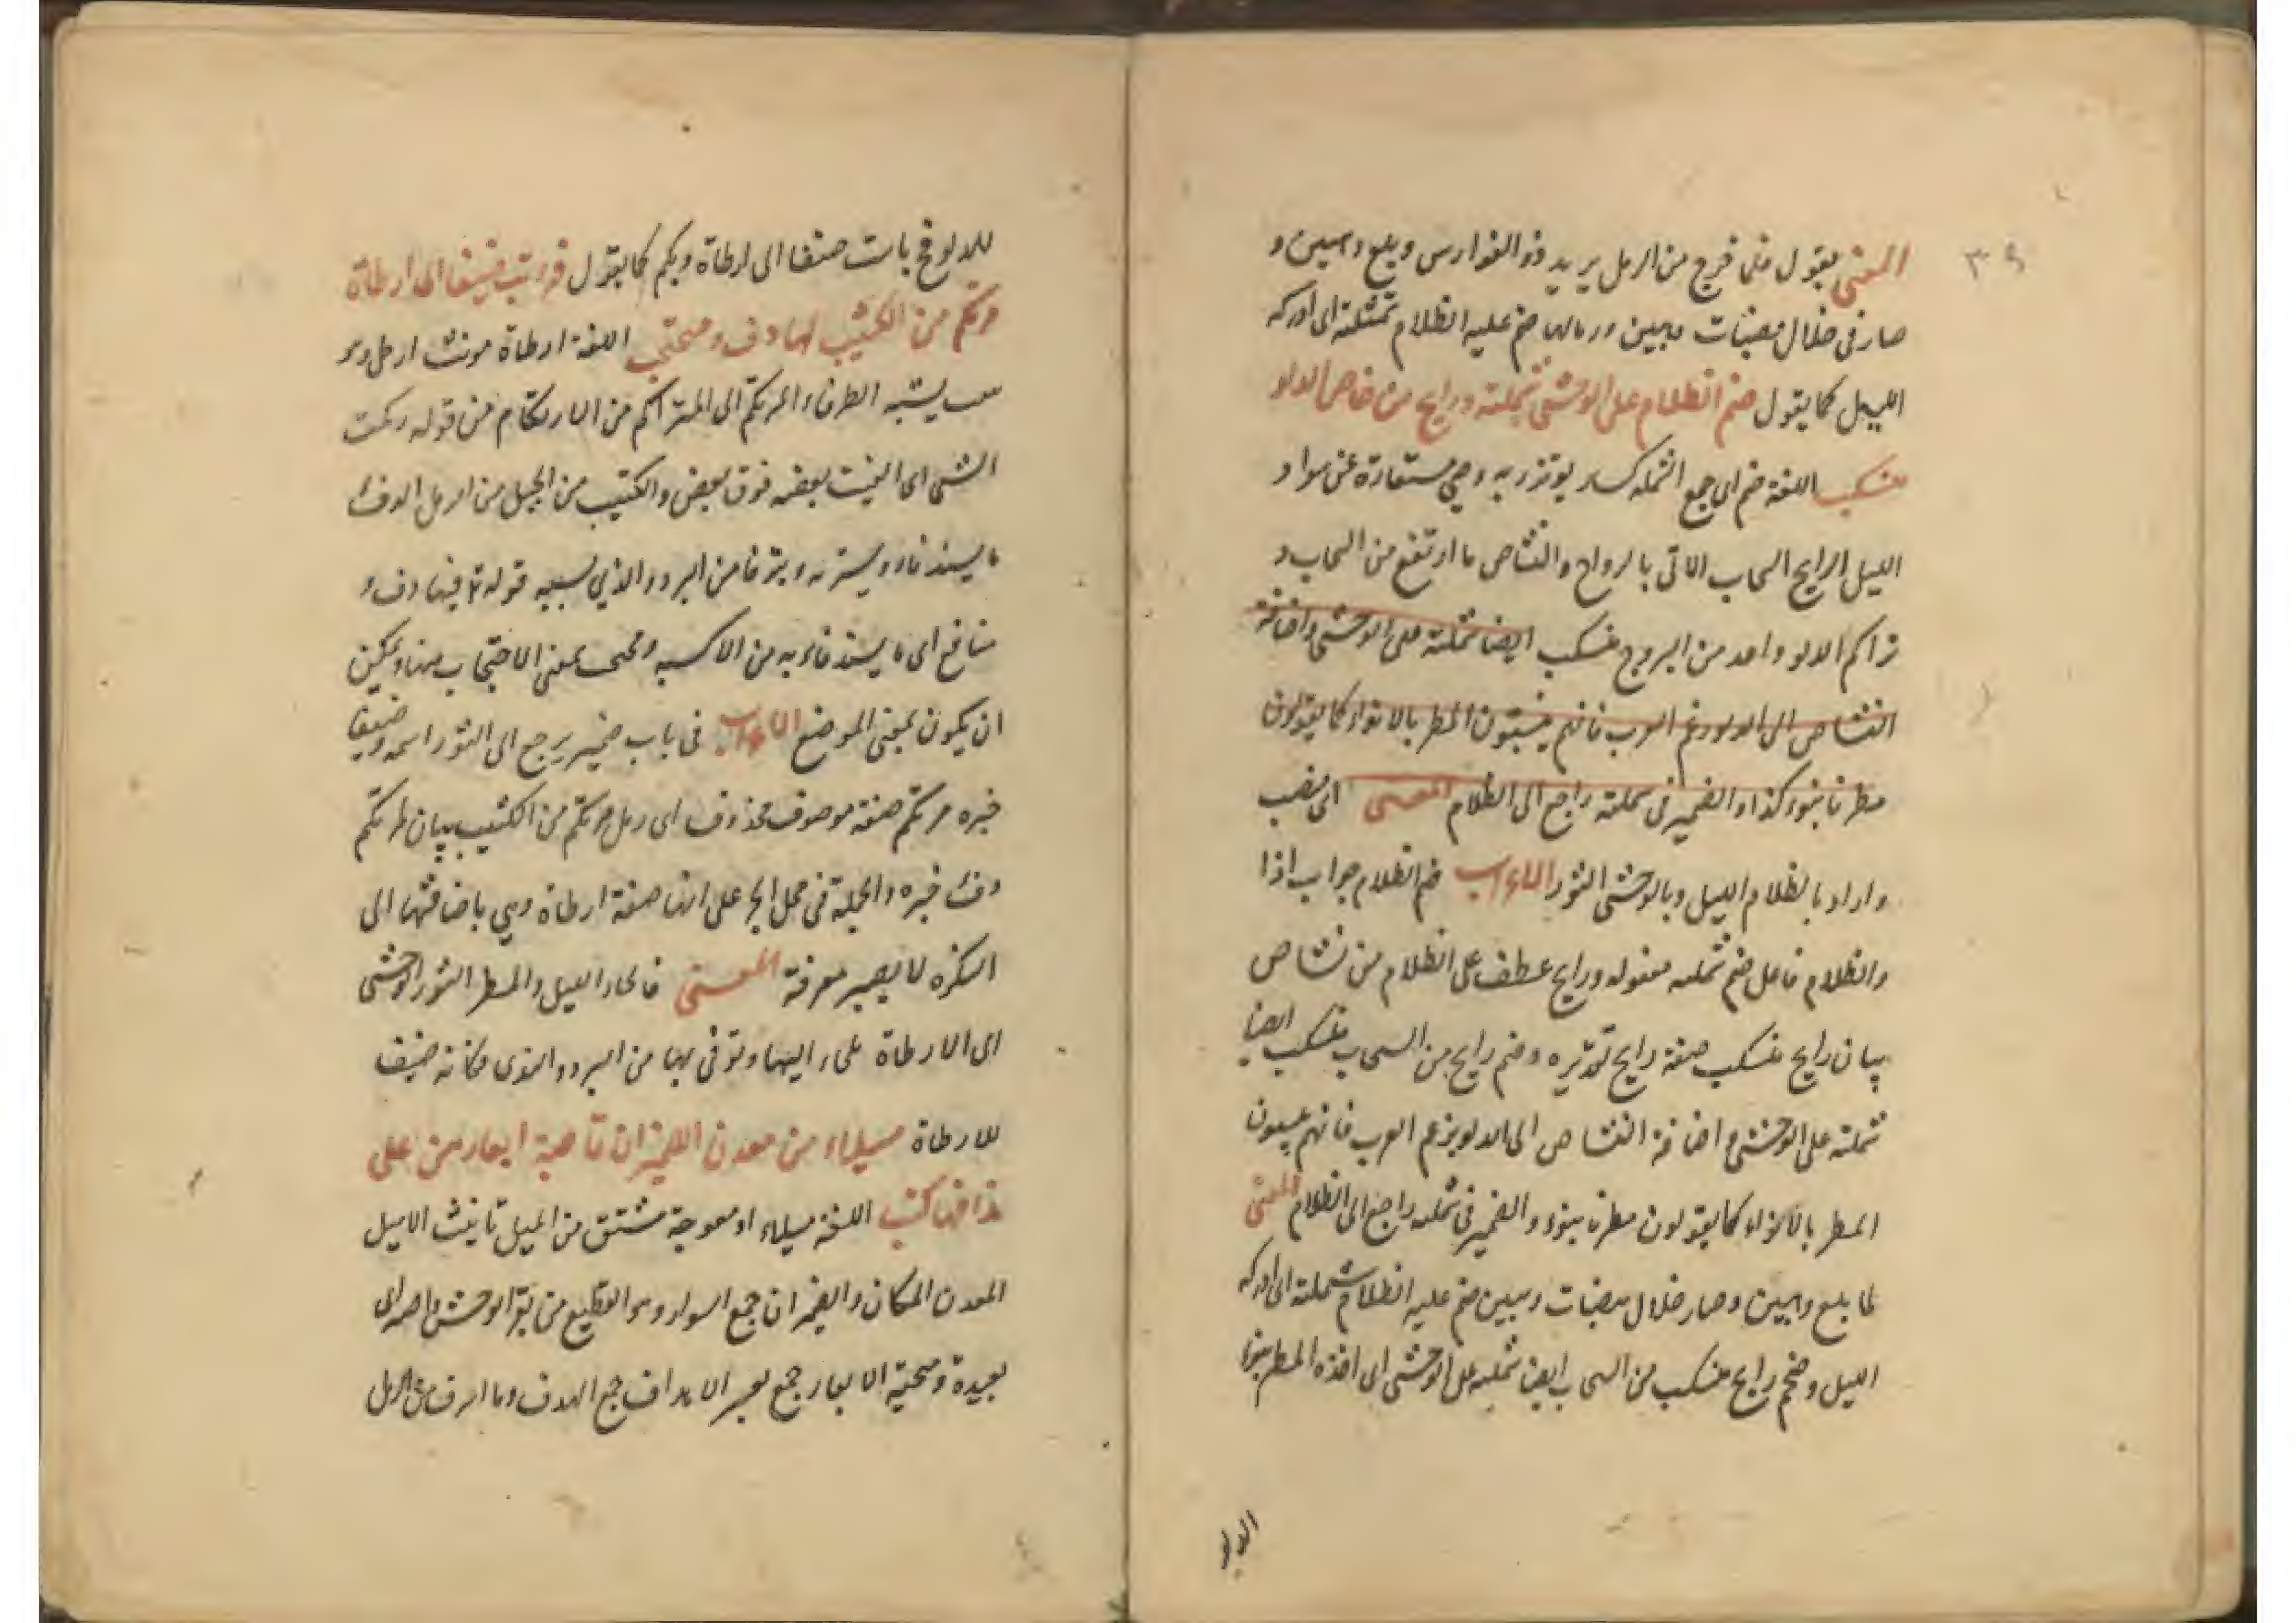 ٣٩
المعنى يقول متى خرج من الرمل يريد ذو الفوارس وبلغ وهبين و
صار فى خلال هضبات وهبين ورمالها ضم عليه الظلام شملته اى ادركه
الليل كما يقول ضم الظلام على الوحشى شملته ورايح من نشاص الدلو
منسكب اللغة ضم اى جمع الشملة كساء يوتزر به وهى مستعارة عن سواد
الليل الرايح السحاب الاتى بالرواح والنشاص ما ارتفع من السحاب و
تراكم الدلو واحد من البروج منسكب ايضا شملته على الوحشى واضافة
النشاص الى الدلو بزعم العرب فانهم ينسبون المطر بالانواء كما يقولون
مطرنا بنوء كذا والضمير فى شملته راجع الى الظلام المعنى اى منصب
واراد بالظلام الليل وبالوحشى الثور الاعراب ضم الظلام جواب اذا
والظلام فاعل ضم شملته مفعوله ورايح عطف على الظلام من نشاص
بيان رايح منسكب صفة رايح تقديره وضم رايح من السحاب منسكب ايضا
شملته على الوحشى واضافة النشاص الى الدلو بزعم العرب فانهم ينسبون
المطر بالانواء كما يقولون مطرنا بنوء والضمير فى شملته راجع الى الظلام المعنى
لما بلغ وهبين وصار خلال هضبات وهبين ضم عليه الظلام شملته اى ادركه
الليل وضم رايح منسكب من السحاب ايضا شملته على الوحشى اى اخذه المطر بنوء
الدلو
للدلو فبات ضيفا الى ارطاة مرتكم كما يقول فبات ضيفا الى ارطاة
مرتكم من الكثيب لها دفء ومحتجب اللغة ارطاة مونث ارطى وهو
يشبه الطرفاء المرتكم اى المتراكم من الارتكام من قوله ركمت
الشى اى القيت بعضه فوق بعض والكثيب من الجبل من الرمل الدفء
ما يستدفاء ويستر به من البرد والذى بسببه قوله تع فيها دفء و
منافع اى ما يستدفاء به من الاكسية ومحتجب بمعنى الاحتجاب هنا ويمكن
ان يكون بمعنى الموضع الاعراب فى بات ضمير يرجع الى الثور اسمه وضيفا
خبره مرتكم صفة موصوف محذوف اى رمل مرتكم من الكثيب بيان مرتكم
دفء خبره والجملة فى محل الجر على انها صفة ارطاة وهى باضافتها الى
النكره لا يصير معرفة المعنى فالجاء الليل والمطر الثور الوحشى
الى الارطاة فلجاء اليها وتوقى بها من البرد والندى فكانه ضيف
للارطاة ميلاء من معدن الصيران قاصية ابعارهن على
اهدافها كثب اللغة ميلاء او معوجة مشتق من الميل تانيث الاميل
المعدن المكان والصيران جمع الصوار وهو القطيع من بقر الوحش قاصية اى
بعيدة ومتنحية الابعار جمع بعر الاهداف جمع الهدف وما اشرف من الرمل